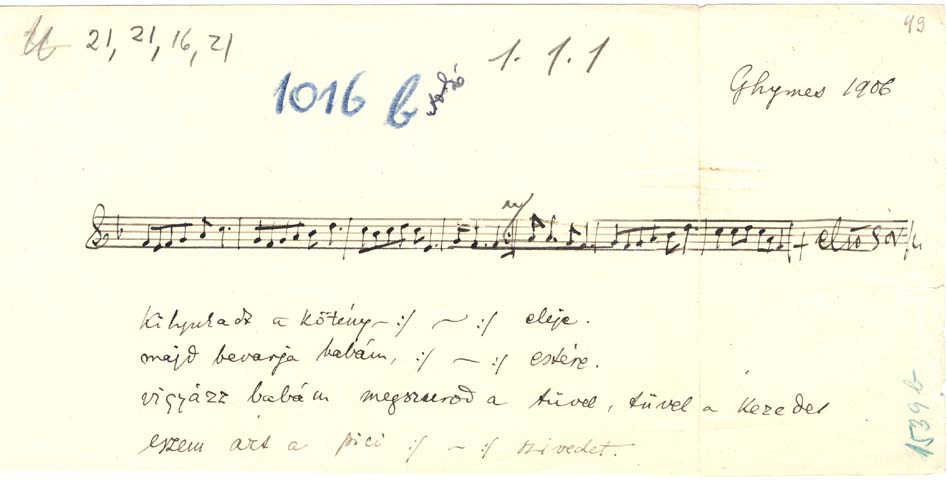 49
21, 21, 16, 21
1. 1. 1
1016 b
Ghymes 1906
+ első sor
Kilyukadt a kötény :/ ~ :/ eleje.
majd bevarja babám, :/ ~ :/ estére.
vigyázz babám megszurod a tüvel, tüvel a kezedet
eszem azt a pici :/ ~ :/ szivedet.
1539 b